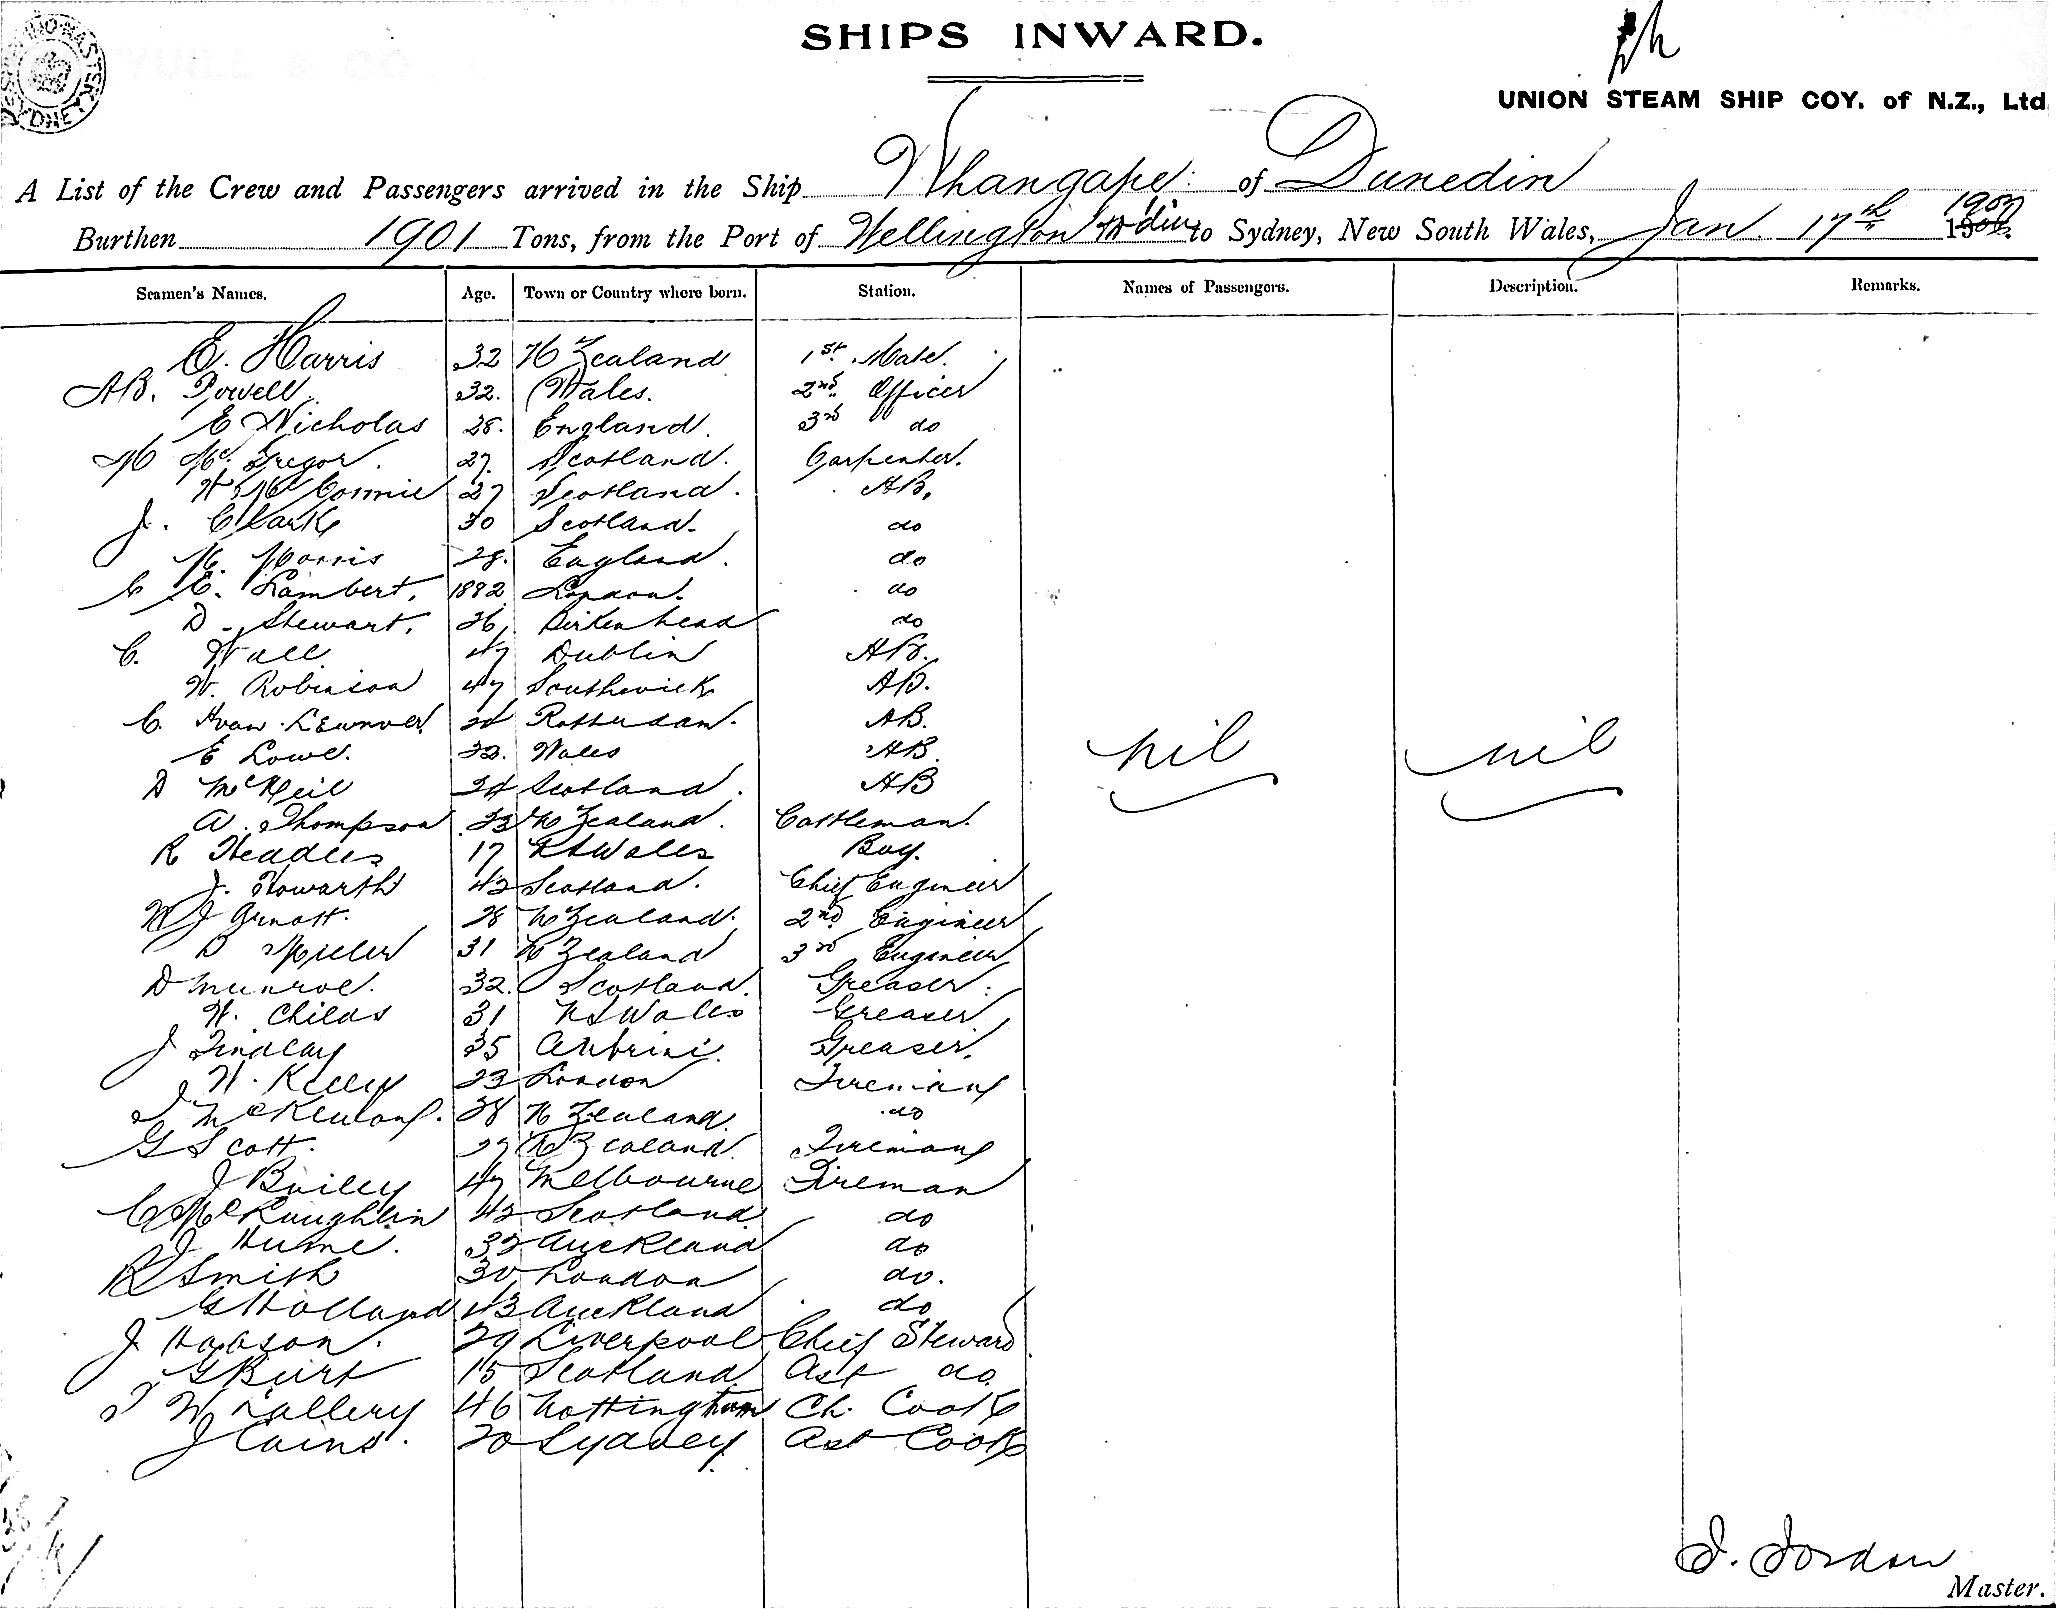 SHIPS INWARD.
UNION STEAM SHIP COY. of N.Z., Ltd
A List of the Crew and Passengers arrived in the Ship Whangape of Dunedin
Burthen 1901 Tons, from the Port of Wellington to Sydney, New South Wales, Jan. 17th 190
Seamen's Names. Age. Town or Country where born. Station. Names of Passengers. Description. Remarks.
E. Harris 32 N Zealand 1st Mate.
AB. Powell 32. Wales. 2nd Officer
E Nicholas 28. England. 3rd do
Mc Gregor. 27. Scotland. Carpenter.
27 Scotland. AB.
J. Clark 30 Scotland. do
M. Morris 28. England. do
C E. Lambert. 1882 London. do
D. Stewart. 26. Birkenhead do
C. Wall 47 Dublin AB.
W. Robinson 47 Southwick AB.
C. Rotterdam. AB.
E Lowe. 32. Wales AB
nil nil
D McNeil 24 Scotland. AB
A. Thompson 23 N Zealand. Cattleman.
R Headles 17 N S Wales Boy.
J. Howarth 42 Scotland. Chief Engineer
W J Arnott. 28 N Zealand. 2nd Engineer
D Miller 31 N Zealand 3rd Engineer
D Munroe. 32. Scotland. Greaser.
W. Childs 31 N S Wales Greaser
J Findlay 35 Antrim. Greaser.
W. Kelly 23 London Fireman
28 N Zealand. do
G Scott. 27 N Zealand. Fireman
J Bailey 47 Melbourne Fireman
C McLaughlin 42 Scotland. do
J Hume. 32 Auckland do
R Smith 30 London do.
G Holland 43 Auckland do
J Hobson. 29 Liverpool Chief Steward
G Burt 15 Scotland. Ast do.
46 Nottingham Ch. Cook
J Cains. 20 Sydney. Ast Cook
J. Jordan
Master.